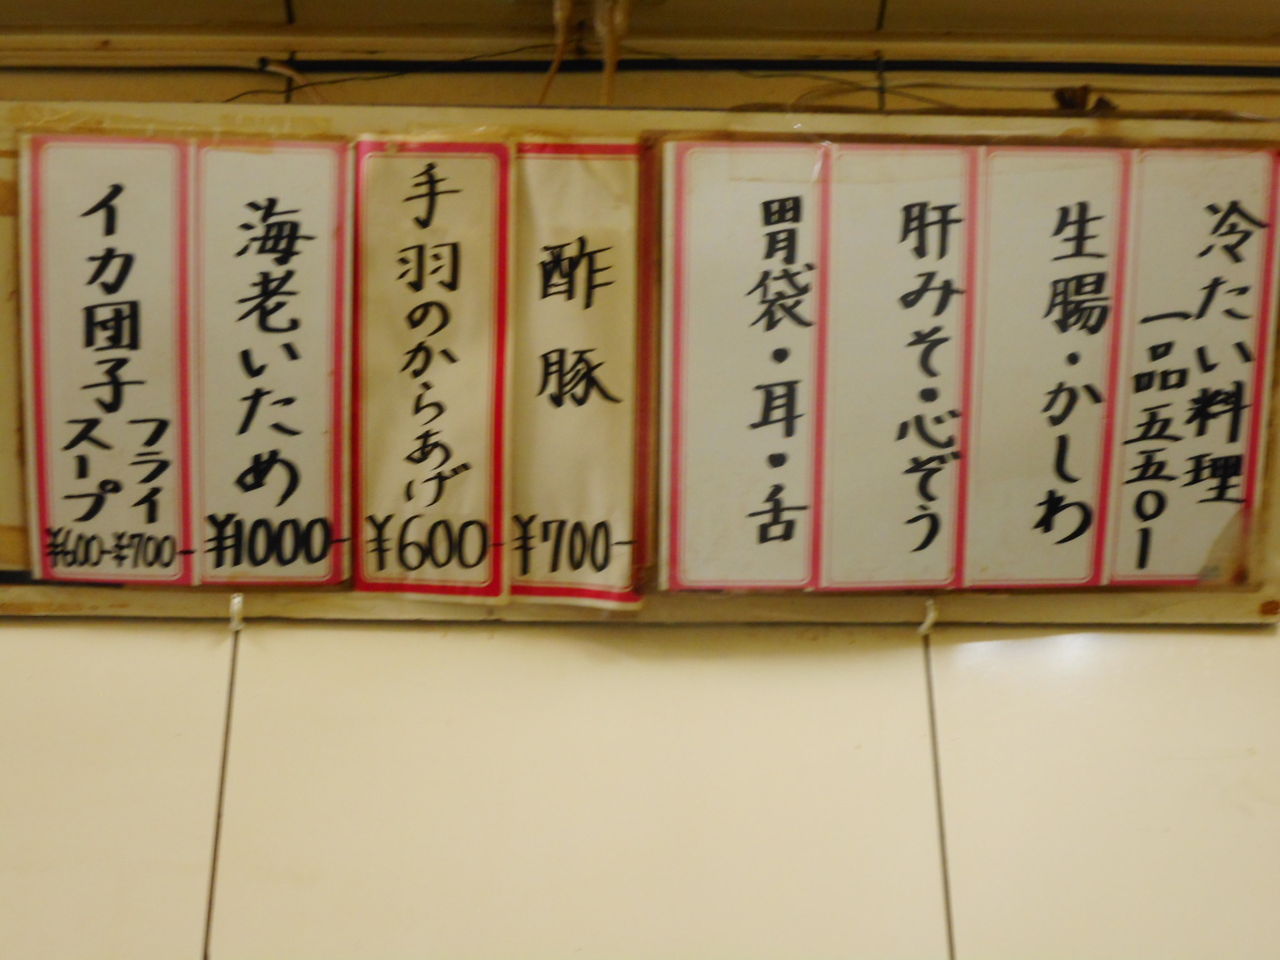 冷たい料理
一品五五〇ー
生腸・かしわ
肝みそ・心ぞう
胃袋・耳・舌
酢豚
¥700-
手羽のからあげ
¥600-
海老いため
¥1000-
イカ団子
フライ
スープ
¥600-¥700-